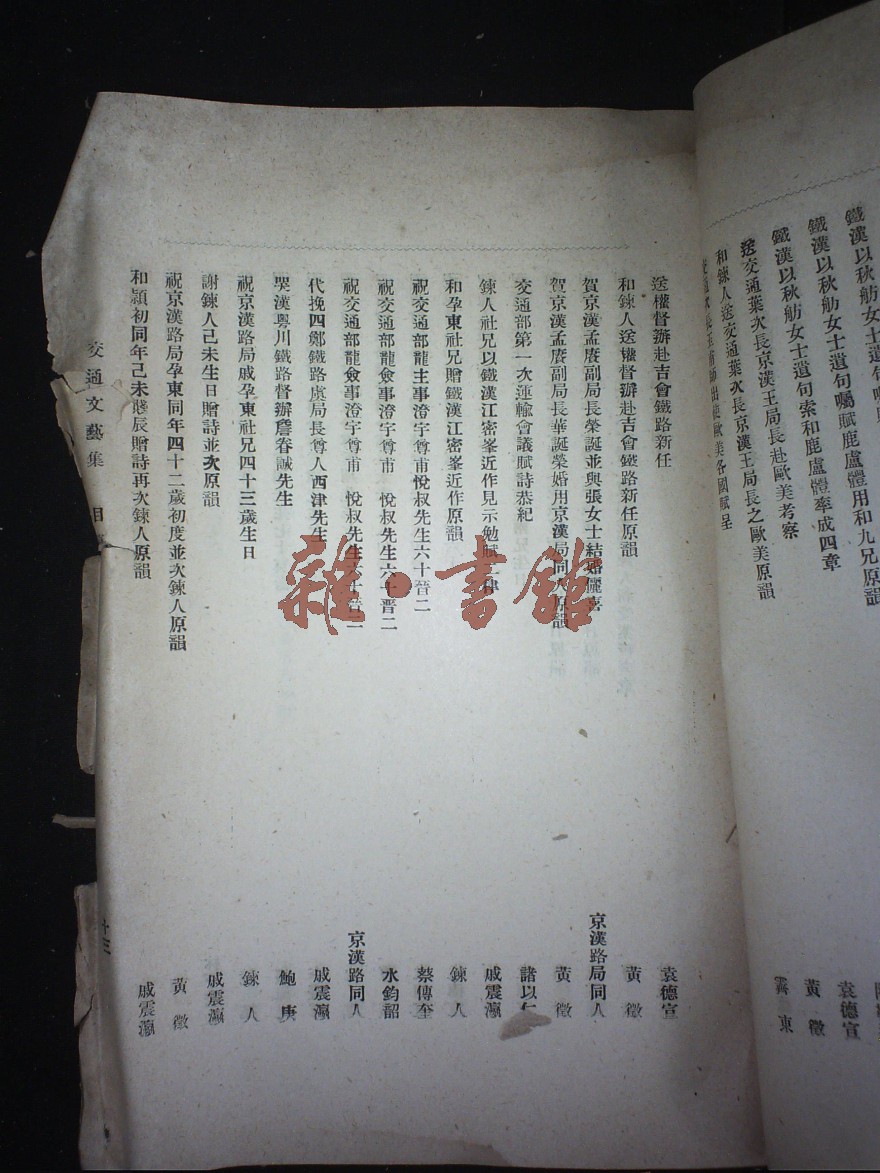 鐵漢以秋舫女士遺句囑賦鹿盧體用和九兄原韻
鐵漢以秋舫女士遺句索和鹿盧體率成四章
袁德宣
鐵漢以秋舫女士遺句囑賦
送交通葉次長京漢王局長赴歐美考察
黃徵
和鍊人送交通葉次長京漢王局長之歐美原韻
霽東
出使歐美各國賦呈
送權督辦赴吉會鐵路新任
袁德宣
和鍊人送權督辦赴吉會鐵路新任原韻
黃徵
賀京漢孟賡副局長榮誕並與張女士結婚儷喜
京漢路局同人
賀京漢孟賡副局長華誕榮婚用京漢局同人原韻
黃徵
交通部第一次運輸會議賦詩恭紀
諸以仁
鍊人社兄以鐵漢江密峯近作見示勉賦一律
戚震瀛
和孕東社兄贈鐵漢江密峯近作原韻
鍊人
祝交通部龍主事澄宇尊甫悅叔先生六十晉二
蔡傳奎
祝交通部龍僉事澄宇尊甫 悅叔先生六十晉二
水鈞韶
祝交通部龍僉事澄宇尊甫 悅叔先生六十晉二
京漢路同人
代挽四鄭鐵路虞局長尊人西津先生
戚震瀛
哭漢粵川鐵路督辦詹眷誠先生
鮑庚
祝京漢路局戚孕東社兄四十三歲生日
鍊人
謝鍊人己未生日贈詩並次原韻
戚震瀛
祝京漢路局孕東同年四十二歲初度並次鍊人原韻
黃徵
和穎初同年己未賤辰贈詩再次鍊人原韻
戚震瀛
交通文藝集 目
十三
雜·書館